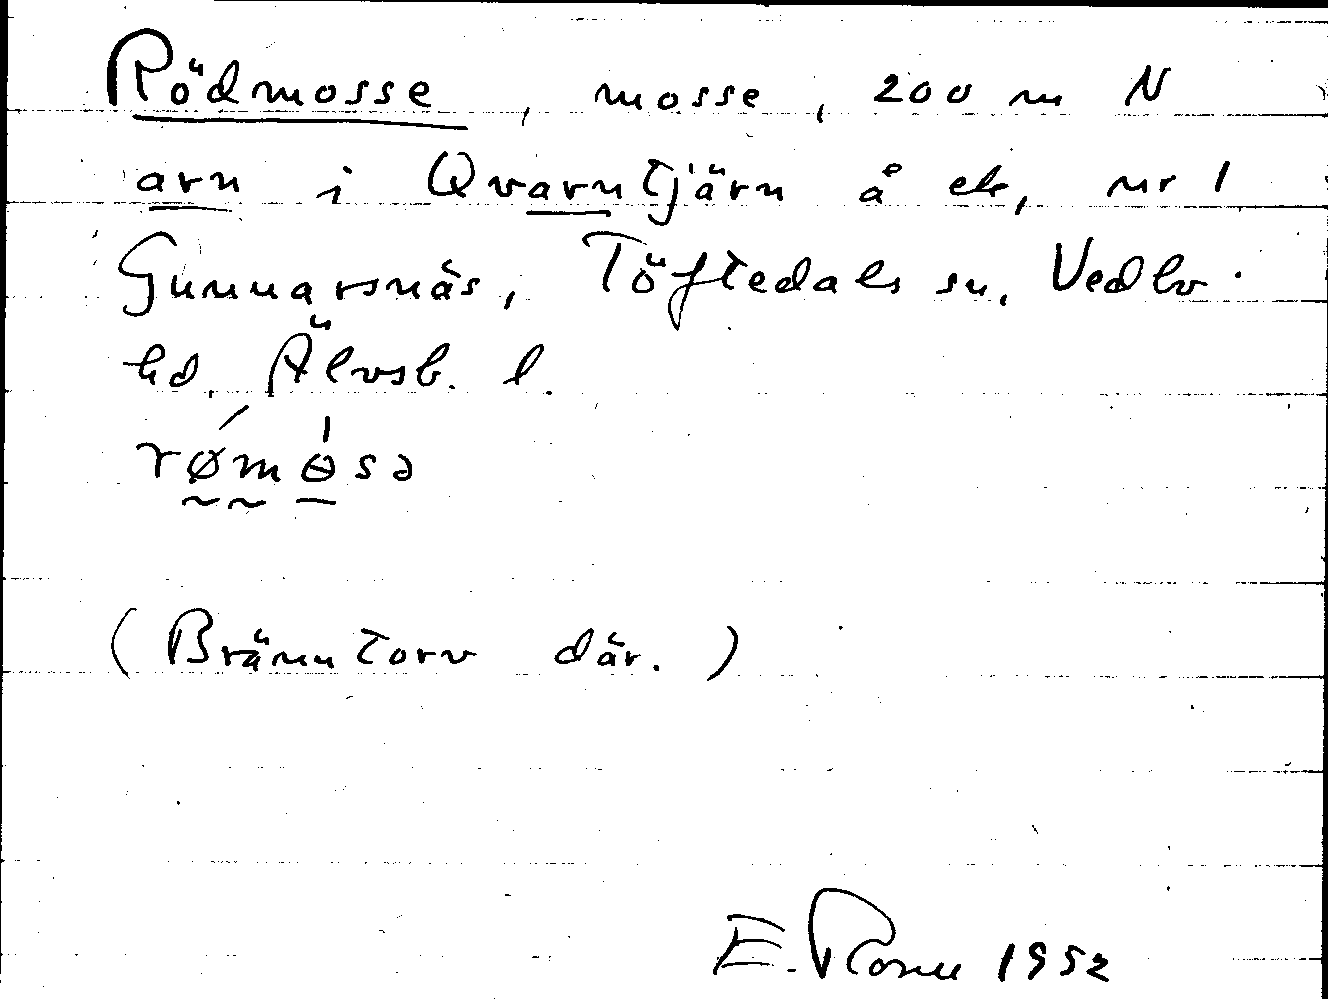 Rödmosse, mosse, 200 m N
arn i Qvarntjärn å ek, nr 1
Gunnarsnäs, Töftedals sn, Vedbo.
hd, Älvsb. l.
rømɵsə
(Bränntorv där.)
E. 1952